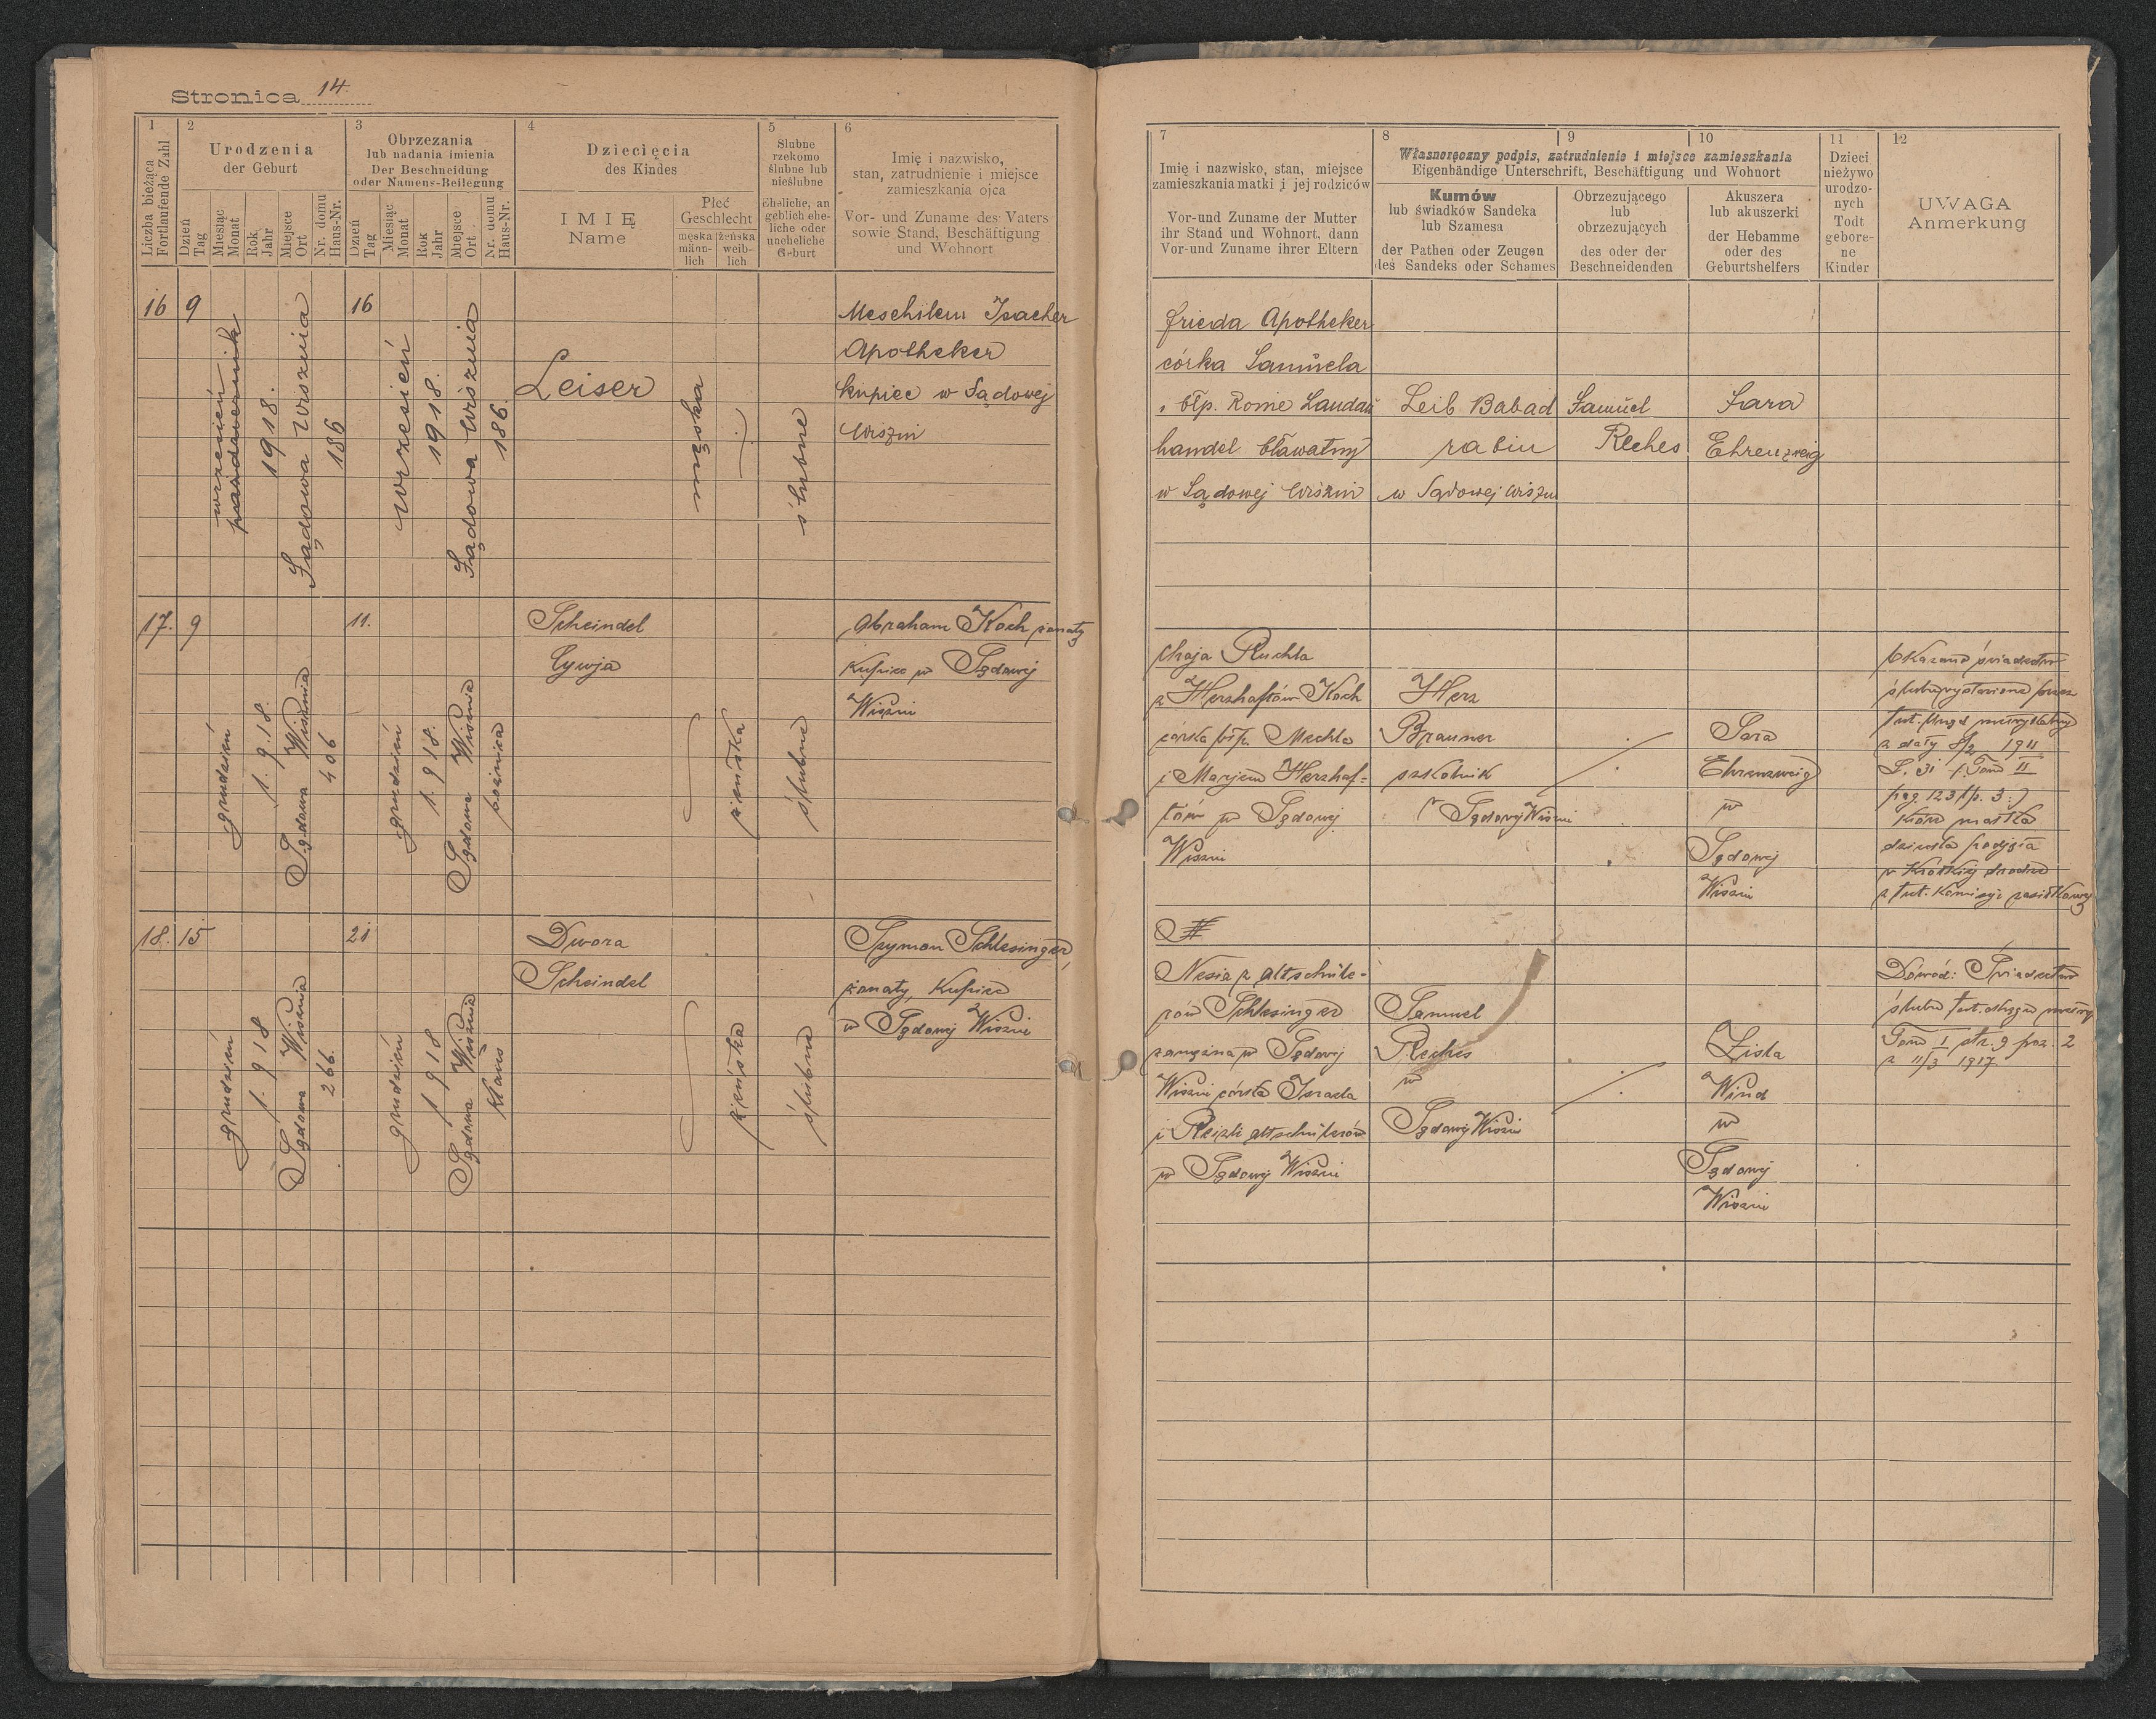 Stronica 14
1
Liczba bieżąca
Fortlaufende Zahl
2
Urodzenia
der Geburt
Dzień
Tag
Miesiąc
Monat
Rok
Jahr
Miejsce
Ort
Nr. domu
Haus-Nr.
3
Obrzezania
lub nadania imienia
Der Beschneidung
oder Namens-Beilegung
Dzień
Tag
Miesiąc
Monat
Rok
Jahr
Miejsce
Ort
Nr. domu
Haus-Nr.
4
Dziecięcia
des Kindes
IMIĘ
Name
Płeć
Geschlecht
męska
männ-
lich
żeńska
weib-
lich
5
Ślubne
rzekomo
ślubne lub
nieślubne
Eheliche, an
geblich ehe-
liche oder
uneheliche
Geburt
6
Imię i nazwisko,
stan, zatrudnienie i miejsce
zamieszkania ojca
Vor- und Zuname des Vaters
sowie Stand, Beschäftigung
und Wohnort
7
Imię i nazwisko, stan, miejsce
zamieszkania matki i jej rodziców
Vor-und Zuname der Mutter
ihr Stand und Wohnort, dann
Vor-und Zuname ihrer Eltern
8
9
10
Własnoręczny podpis, zatrudnienie i miejsce zamieszkania
Eigenhändige Unterschrift, Beschäftigung und Wohnort
Kumów
lub świadków Sandeka
lub Szamesa
der Pathen oder Zeugen
des Sandeks oder Schames
Obrzezującego
lub
obrzezujących
des oder der
Beschneidenden
Akuszera
lub akuszerki
der Hebamme
oder des
Geburtshelfers
11
Dzieci
nieżywo
urodzo-
nych
Todt
gebore-
ne
Kinder
12
UWAGA
Anmerkung
16
9
wrzesień
październik
1918.
Sądowa Wisznia
186
16
wrzesień
1918.
Sądowa Wisznia
186.
Leiser
męska
ślubne
Meschilem Isacher
Apotheker
kupiec w Sądowej
Wiszni
Frieda Apotheker
córka Samuela
i błp. Romie Landau
handel bławatny
w Sądowej Wiszni
Leib Babad
rabin
w Sądowej Wiszni
Samuel
Reches
Sara
Ehrenzweig
17.
9
grudzień
1.918.
Sądowa Wisznia
406
11.
grudzień
1.918.
Sądowa Wisznia
bożnica
Scheindel
Cywja
żeńska
ślubne
Abraham Koch żonaty
Kupiec w Sądowej
Wiszni
Chaja Ruchla
z Herzhaftów Koch
córka błp. Mechla
i Marjem Herzhaf-
tów w Sądowej
Wiszni
Herz
Brauner
szkolnik
w Sądowej Wiszni
Sara
Ehrenzweig
w
Sądowej
Wiszni
Okazano świadectwo
ślubu wystawione przez
tut. Urząd metrykalny
z daty 8/2 1911
Tom II
pag. 123 lp. 3.)
które matka
dziecka podjęła
w krótkiej drodze
z tut. Komisyi zasiłkowej
18.
15
grudzień
1.918
Sądowa Wisznia
266.
21
grudzień
1 918
Sądowa Wisznia
Klaus
Dwora
Scheindel
żeńska
ślubne
Szymon Schlesinger,
żonaty, Kupiec
w Sądowej Wiszni
Nesia z Altschüle-
rów Schlesinger
zamężna w Sądowej
Wiszni córka Izraela
i Reizli Altschülerów
w Sądowej Wiszni
Samuel
Reches
w
Sądowej Wiszni
Ziska
Wind
w
Sądowej
Wiszni
Dowód: Świadectwo
ślubu tut. okręgu metryk.
Tom I str. 9 poz. 2
z 11/3 1917.